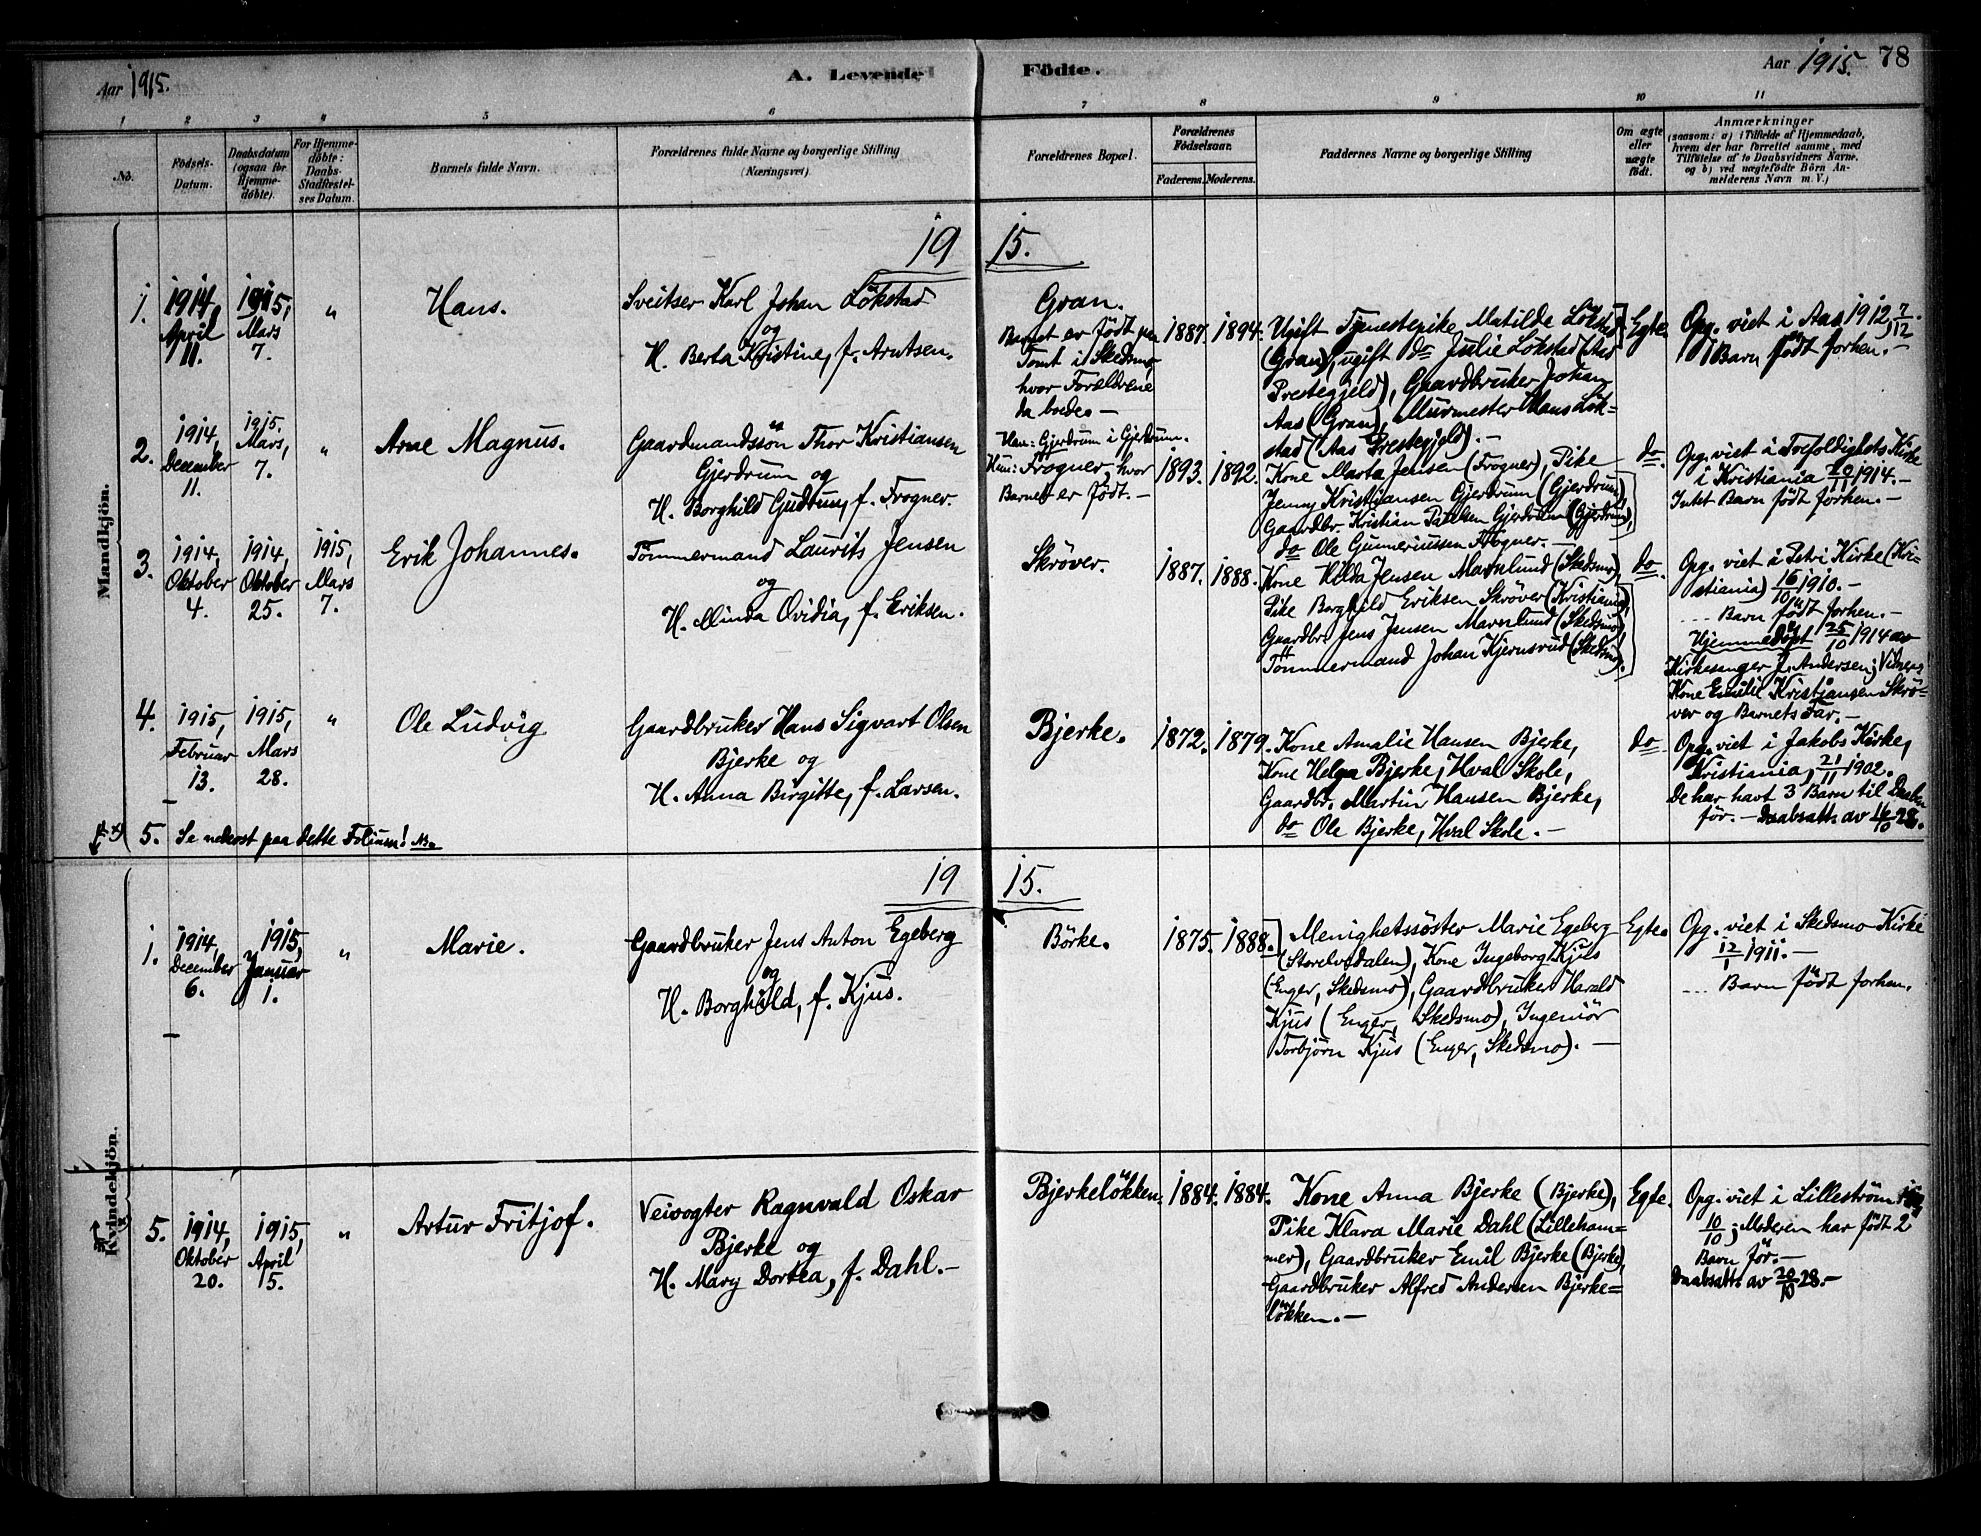 Aar 1915.
A. Levende Födte.
Aar 1915. 78
1 2 3 4 5 6 7 8 9 10 11
No.
Födsels-
Datum.
Daabsdatum
(ogsaa for
Hjemme-
döbte).
For Hjemme-
döbte:
Daabs-
Stadfæstel-
ses Datum.
Barnets fulde Navn.
Forældrenes fulde Navne og borgerlige Stilling
(Næringsvei)
Forældrenes Bopæl.
Forældrenes
Födselsaar.
Faderens. Moderens.
Faddernes Navne og borgerlige Stilling
Om ægte
eller
uægte
födt.
Anmærkninger
(saasom: a) i Tilfælde af Hjemmedaab,
hvem der har forrettet samme, med
Tilföielse af to Daabsvidners Navne,
og b) ved uægtefödte Börn An-
melderens Navn m. V.)
Mandkjön.
19 15.
1.
1914,
April
11.
1915,
Mars
7.
"
Hans.
Sveitser Karl Johan Lökstad
og
H. Berta Kristine, f. Arntsen.
Gran.
Barnet er födt paa
Tomt i Skedsmo,
hvor Forældrene
da bodde. —
1887. 1894.
Ugift Tjenestepike Matilde Lökstad
(Gran), ugift do Julie Lökstad (Aas
Prestegjeld), Gaardbruker Johan
Aas (Gran), Murmester Hans Lök-
stad (Aas Prestegjeld). —
Egte
Opg. viet i Aas 1912, 7/12.
1 Barn födt forhen. —
2.
1914,
December
11.
1915.
Mars,
7.
"
Arne Magnus.
Gaardmandssön Thor Kristiansen
Gjerdrum og
H. Borghild Gudrun, f. Frogner.
Han: Gjerdrum i Gjerdrum.
Hun: Frogner, hvor
Barnet er födt. —
1893. 1892.
Kone Marta Jensen (Frogner), Pike
Jenny Kristiansen Gjerdrum (Gjerdrum),
Gaardbr. Kristian Paulsen Gjerdrum (Gjerdrum),
do Ole Gunneriussen Frogner. —
do.
Opg. viet i Trefoldighets Kirke
i Kristiania 20/11 1914. —
Intet Barn födt forhen. —
3.
1914,
Oktober
4.
1914,
Oktober
25.
1915,
Mars
7.
Erik Johannes.
Tömmermand Laurits Jensen
og
H. Minda Ovidia, f. Eriksen.
Skröver.
1887. 1888.
Kone Hilda Jensen Mavnlund (Skedsmo),
Pike Borghild Eriksen Skröver (Kristiania),
Gaardbr. Jens Jensen Mavnlund (Skedsmo),
Tömmermand Johan Kjernsrud (Skedsmo).
do.
Opg. viet i Petri Kirke (Kri-
stiania) 16/10 1910. —
... Barn födt forhen. —
Hjemmedöpt 25/10 1914 av
Kirkesanger J. Andersen; Vidner:
Kone Emilie Kristiansen Skrö-
ver og Barnets Far. —
4.
1915,
Februar
13.
1915,
Mars
28.
"
Ole Ludvig
Gaardbruker Hans Sigvart Olsen
Bjerke og
H. Anna Birgitte, f. Larsen.
Bjerke.
1872. 1879.
Kone Amalie Hansen Bjerke,
Kone Helga Bjerke, Hval Skole,
Gaardbr. Martin Hansen Bjerke,
do Ole Bjerke, Hval Skole. —
do.
Opg. viet i Jakobs Kirke,
Kristiania, 21/11 1902.
De har havt 3 Barn til Daaben
för. — Daabsatt. av 16/10 28.
5. Se nederst paa dette Folium!
19 15.
Kvindekjön.
1.
1914,
December
6.
1915,
Januar
1.
"
Marie.
Gaardbruker Jens Anton Egeberg
og
H. Borghild, f. Kjus.
Börke.
1875. 1888.
Menighetssöster Marie Egeberg
(Storelvedalen), Kone Ingeborg Kjus
(Enger, Skedsmo), Gaardbruker Harald
Kjus (Enger, Skedsmo), Ingeniör
Torbjörn Kjus (Enger, Skedsmo). —
Egte.
Opg. viet i Skedsmo Kirke
12/1 1911. —
... Barn födt forhen.
5.
1914,
Oktober
20.
1915,
April
5.
"
Artur Fritjof.
Veivogter Ragnvald Oskar
Bjerke og
H. Mary Dortea, f. Dahl. —
Bjerkelökken.
1884. 1884.
Kone Anna Bjerke (Bjerke),
Pike Klara Marie Dahl (Lilleham-
mer), Gaardbruker Emil Bjerke (Bjerke),
Gaardbruker Alfred Andersen Bjerke-
lökken. —
Egte.
Opg. viet i Lilleström
10/10; Moderen har födt 2
Barn för. —
Daabsatt. av 20/10 28. —